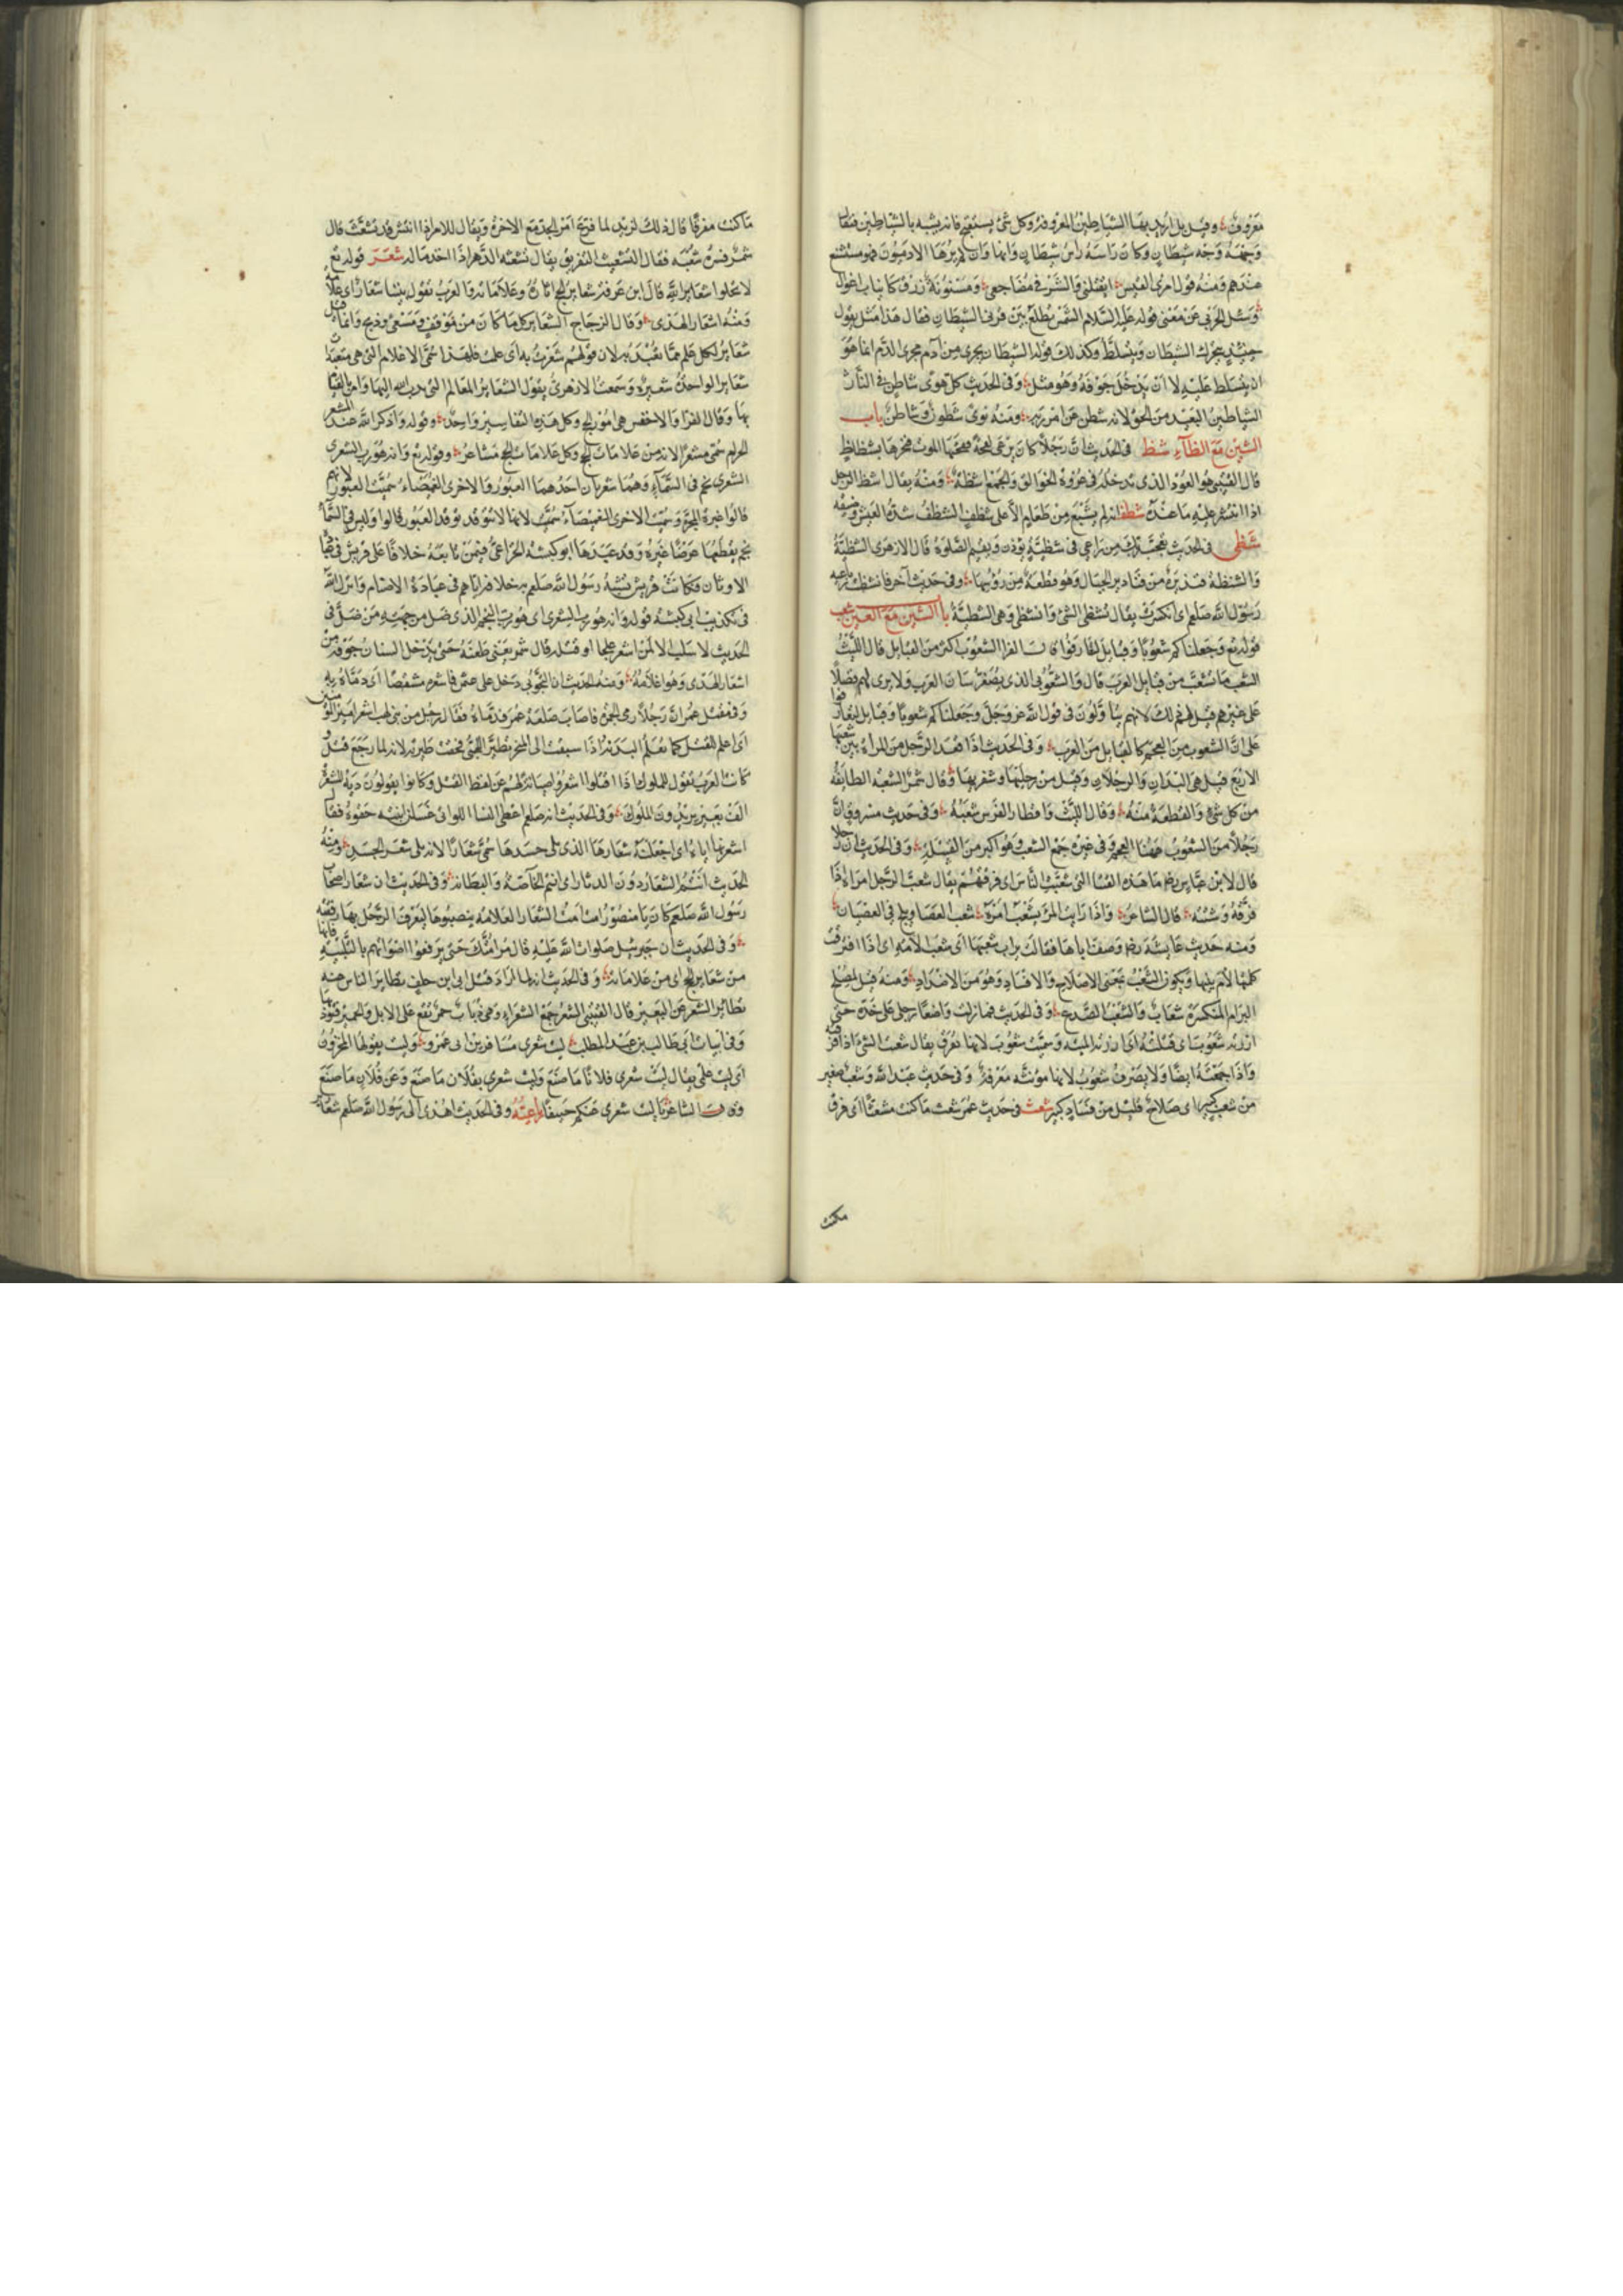 معروف وقيل بل اريد بها الشياطين المعروفة وكل شئ يستقبح فانه يشبه بالشياطين فيقال
وجهه وجه شيطان وكان راسه راس شيطان وانها وان لم يرها الادميون فهو مستشنع
عندهم ومنه قول امرئ القيس ايقتلني والمشرفي مضاجعي ومسنونة زرق كانياب اغوال
وسئل الحربي عن معنى قوله عليه السلام الشمس تطلع بين قرني الشيطان فقال هذا مثل يقول
حينئذ يتحرك الشيطان ويتسلط وكذلك قوله الشيطان يجرى من ادم مجرى الدم انما هو
ان يتسلط عليه لا ان يدخل جوفه وهو مثل وفي الحديث كل هوى شاطن في النار
الشاطن البعيد من الحق لانه شطن عن امر ربه ومنه نوى شطون وشاطن باب
الشين مع الظاء شظ في الحديث ان رجلا كان يرعى لقحة ففجئها الموت فنحرها بشظاظ
قال القتيبي هو العود الذى تدخله في عروة الجوالق والجمع اشظة ومنه يقال اشظ الرجل
اذا انتشر عليه ما عنده شظف انه لم يشبع من طعام الا على شظف الشظف شدة العيش وضيقه
شظى في الحديث يعجب ربك من راعي في شظية يؤذن ويقيم الصلوة قال الازهرى الشظية
والشنظية فنديرة من فنادير الجبال وهو قطعة من رؤسها وفي حديث آخر فانشظت رباعية
رسول الله صلعم اى انكسرت يقال تشظى الشئ وانشظى وهى الشظية باب الشين مع العين شعب
قوله تع وجعلناكم شعوبا وقبائل لتعارفوا قال الفرا الشعوب اكبر من القبايل قال الليث
الشعب ما تشعب من قبايل العرب قال والشعوبي الذى يصغر شان العرب ولا يرى لهم فضلا
على غيرهم قيل لهم ذلك لانهم يتاولون في قول الله عز وجل وجعلناكم شعوبا وقبايل لتعارفوا
على ان الشعوب من العجم كالقبايل من العرب وفي الحديث اذا قعد الرجل من المراة بين شعبها
الاربع قيل هى اليدان والرجلان وقيل من رجليها وشفريها وقال شمر الشعبة الطايفة
من كل شئ والقطعة منه وقال الليث واقطار الفرس شعبه وفي حديث مسروق ان
رجلا من الشعوب ههنا العجم وفي غيره جمع الشعب وهو اكبر من القبيلة وفي الحديث ان رجلا
قال لابن عباس رضه ما هذه الفتيا التى شعبت الناس اى فرقتهم يقال شعب الرجل امره اذا
فرقه وشتته قال الشاعر واذا رايت المرء يشعب امره شعب العصا ويلج في العصيان
ومنه حديث عايشة رضه وصفت اباها فقالت يراب شعبها اى شعب الامة اى اذا افترقت
كلمتها لام بينها ويكون الشعب بمعنى الاصلاح والافساد وهو من الاضداد ومنه قيل لمصلح
البرام المنكسرة شعاب والشعب الصدع وفي الحديث فما زلت واضعا رجلى على خده حتى
ازرته شعوب اى قتلته اى ازرته المنية وسميت شعوب لانها تفرق يقال شعبت الشئ اذا فرقته
واذا جمعته ايضا ولا يصرف شعوب لانها مؤنثه معرفة وفي حديث عبد الله وشعب صغير
من شعب كبير اى صلاح قليل من فساد كبير شعث في حديث عمر شعث ماكنت مشعثا اى فرق
ماكنت
ماكنت مفرقا قال ذلك لزيد لما فرع امر الجد مع الاخوة ويقال للامر اذا انتشر قد تشعث قال
شمر فسره شعبه فقال التشعيث التفريق يقال تشعثه الدهر اذا اخذ ماله شعر قوله تع
لا تحلوا شعاير الله قال ابن عرفة شعاير الحج اثاره وعلاماته والعرب تقول بيننا شعار اى علامة
ومنه اشعار الهدى وقال الزجاج الشعاير كل ما كان من موقف ومسعى وذبح وانما قيل
شعاير لكل علم مما تعبد به لان قولهم شعرت به اى علمته فلهذا سمى الاعلام التى هى متعبدات
شعاير الواحدة شعيرة وسمعت الازهرى يقول الشعاير المعالم التى ندب الله اليها وامر بالقيام
بها وقال الفرا والاخفش هى امور الحج وكل هذه التفاسير واحد وقوله واذكر الله عند المشعر
الحرام سمى مشعرا لانه من علامات الحج وكل علامات الحج مشاعر وقوله تع وانه هو رب الشعرى
الشعرى نجم في السماء وهما شعريان احدهما العبور والاخرى الغميضاء سميت العبور لانهم
قالوا عبرة المجرة وسميت الاخرى الغميضاء سميت لانها لا تتوقد توقد العبور قالوا وليس في السماء
نجم يقطعها عرضا غيره وقد عبدها ابو كبشة الخزاعي فيمن تابعه خلافا على قريش في عبادتها
الاوثان فكانت قريش تشبه رسول الله صلعم به خلافه اياهم في عبادة الاصنام وانزل الله
في تكذيب ابى كبشة قوله وانه هو رب الشعرى اى هو رب النجم الذى ضل من جهته من ضل في
الحديث لا سلب الا لمن اشعر علجا او قتله قال شمر يعنى طعنه حتى يدخل السنان جوفه من
اشعار الهدى وهو اعلامه ومنه الحديث ان التجوبي دخل على عثمن فاشعره مشقصا اى دماه به
وفي مقتل عمر ان رجلا رمى الجمرة فاصاب صلعة عمر فدماه فقال رجل من بنى لهب اشعر امير المؤمنين
اى اعلم للقتل كما تعلم البدنة اذا سيقت الى المنحر تطير اللهبى فحقت طيرته لانه لما رجع قتل و
كانت العرب تقول للملوك اذا قتلوا اشعروا صيانة لهم عن لفظ القتل وكانوا يقولون دية المشعرة
الف بعير يريدون الملوك وفي الحديث انه صلعم اعطى النسا اللواتى غسلن ابنته حقوة فقال
اشعرنها اياه اى اجعلنه شعارها الذى يلى جسدها سمى شعارا لانه يلى شعر الجسد ومنه
الحديث انتم الشعار دون الدثار اى انتم الخاصة والبطانة وفي الحديث ان شعار اصحاب
رسول الله صلعم كان يا منصور امت امت الشعار العلامة ينصبوها ليعرف الرجل بها رفقته
وفي الحديث ان جبرئيل صلوات الله عليه قال مر امتك حتى يرفعوا اصواتهم بالتلبية فانها
من شعاير الحج اى من علاماته وفي الحديث انه لما اراد قتل ابى ابن خلف تطاير الناس عنه
تطاير الشعر عن البعير قال القتيبى الشعر جمع الشعراء وهى ذباب حمر تقع على الابل والحمير فتؤذيها
وفي ابيات ابى طالب بن عبد المطلب ليت شعرى مسافر بن ابى عمرو وليت يقولها المحزون
اى ليت علمى يقال ليت شعرى فلانا ما صنع وليت شعرى بفلان ما صنع وعن فلان ما صنع
وقال الشاعر يا ليت شعرى عنكم حنيفا وفي الحديث اهدى الى رسول الله صلعم شعارير